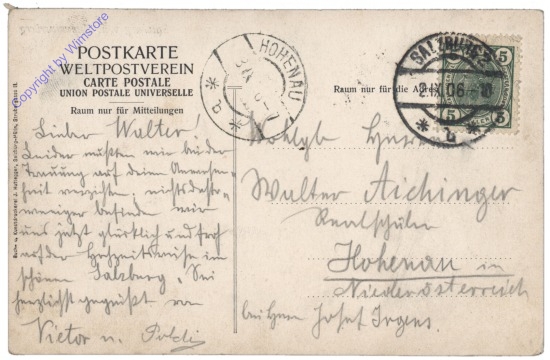 Copyright by Wimstore
POSTKARTE
WELTPOSTVEREIN
CARTE POSTALE
UNION POSTALE UNIVERSELLE
Raum nur für Mitteilungen
Raum nur für die Adresse
HOHENAU
SALZBURG 2
9.IX.06
5
5
5
5
Lieber Walter!
Leider mußten wir bei der
Trauung auf deine Anwesen-
heit verzichten nichtsdesto-
weniger befinden wir
uns jetzt glücklich und froh
auf der Hochzeitsreise im
schönen Salzburg. Sei
herzlichst gegrüßt von
Victor u. Poldi
Wohlgb Herrn
Walter Aichinger
Realschüler
Hohenau in
Niederösterreich
bei Herrn Josef Irgens.